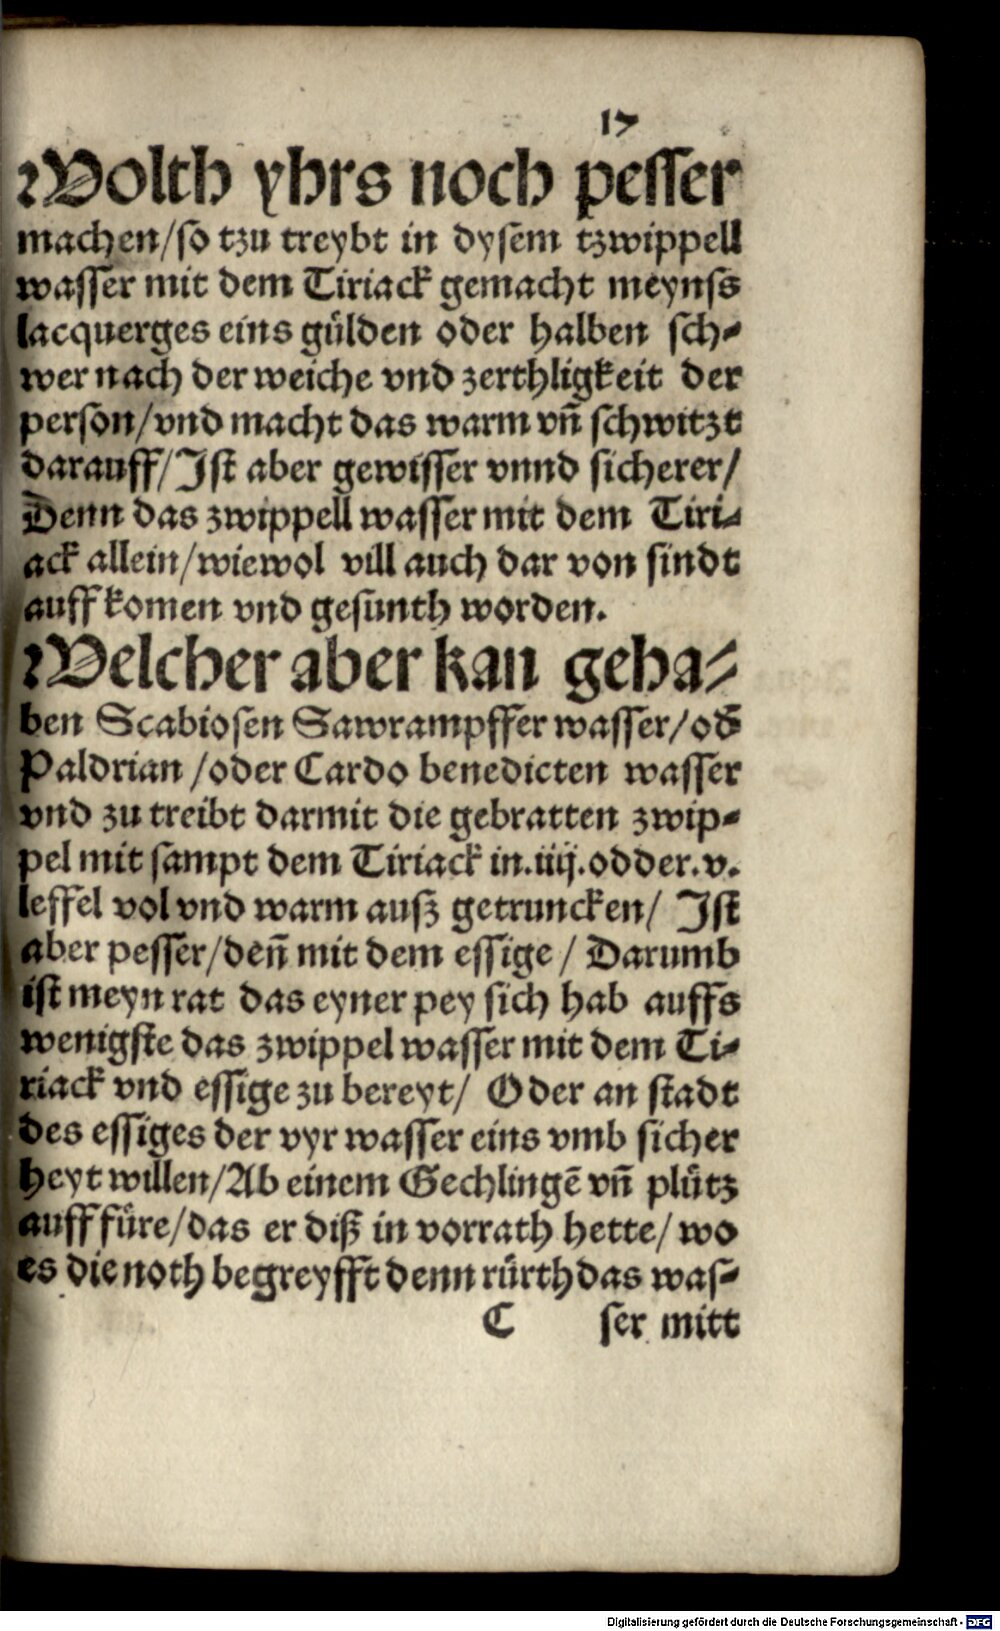 17
Wolth yhrs noch pesser
machen/so tzu treybt in dysem tzwippell
wasser mit dem Tiriack gemacht meynss
lacquerges eins gülden oder halben sch⸗
wer nach der weiche vnd zerthligkeit der
person/vnd macht das warm vn̄ schwitzt
darauff/Ist aber gewisser vnnd sicherer/
Denn das zwippell wasser mit dem Tiri⸗
ack allein/wiewol vill auch dar von sindt
auff komen vnd gesunth worden.
Welcher aber kan geha⸗
ben Scabiosen Sawrampffer wasser/od̄
Paldrian /oder Cardo benedicten wasser
vnd zu treibt darmit die gebratten zwip⸗
pel mit sampt dem Tiriack in.iiij.odder.v.
leffel vol vnd warm ausz getruncken/ Ist
aber pesser/den̄ mit dem essige / Darumb
ist meyn rat das eyner pey sich hab auffs
wenigste das zwippel wasser mit dem Ti⸗
riack vnd essige zu bereyt/ Oder an stadt
des essiges der vyr wasser eins vmb sicher
heyt willen/Ab einem Gechlingē vn̄ plütz
auff füre/das er diß in vorrath hette/ wo
es die noth begreyfft denn rürth das was⸗
C ser mitt
Digitalisierung gefördert durch die Deutsche Forschungsgemeinschaft - DFG